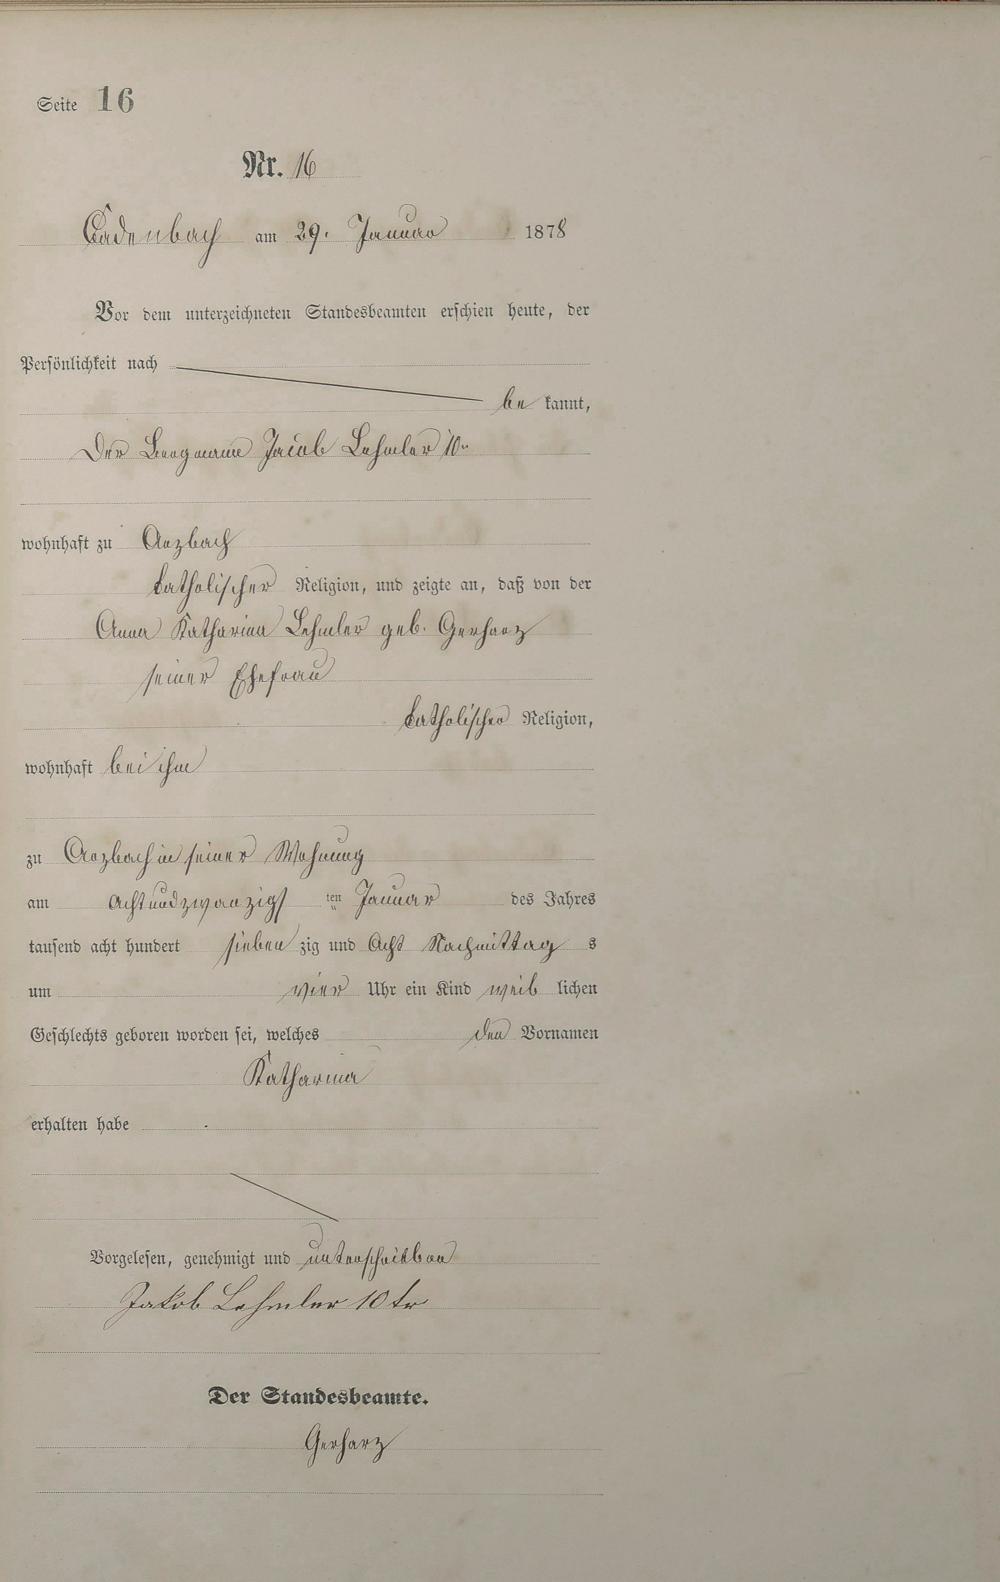 Seite 16
Nr. 16
Cadenbach am 29. Januar 1878
Vor dem unterzeichneten Standesbeamten erschien heute, der
Persönlichkeit nach
be kannt,
Der Bergmann Jacob Lehmler 10r
wohnhaft zu Arzbach
katholischer Religion, und zeigte an, daß von der
Anna Katharina Lehmler geb. Gerharz
seiner Ehefrau
katholischer Religion,
wohnhaft bei ihm
zu Arzbach in seiner Wohnung
am achtundzwanzigsten Januar des Jahres
tausend acht hundert sieben zig und Acht Nachmittag s
um vier Uhr ein Kind weib lichen
Geschlechts geboren worden sei, welches den Vornamen
Katharina
erhalten habe
Vorgelesen, genehmigt und unterschrieben
Jakob Lehmler 10 tr
Der Standesbeamte.
Gerharz